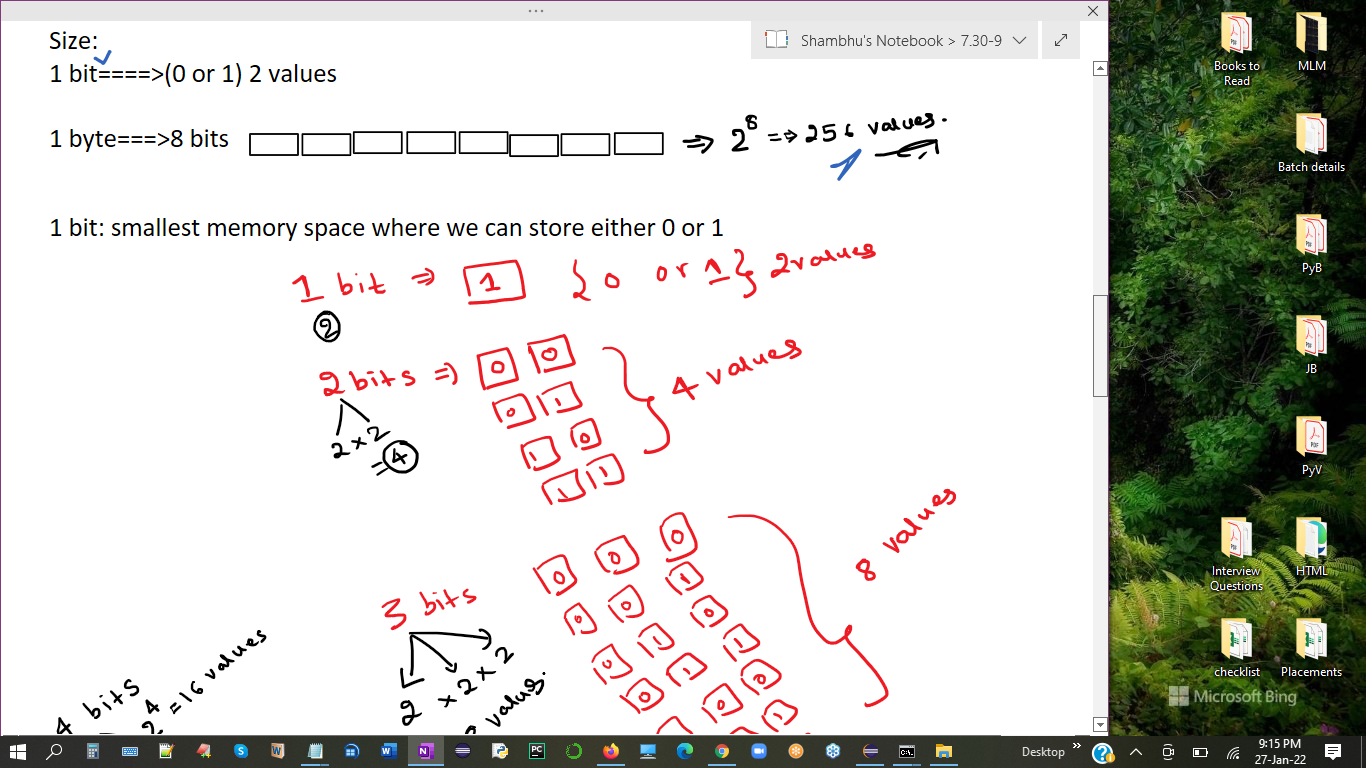 Size:
Shambhu's Notebook > 7.30-9
1 bit====>(0 or 1) 2 values
1 byte===>8 bits ⇒ 2^8 => 256 values.
1 bit: smallest memory space where we can store either 0 or 1
1 bit ⇒ 1 { 0 or 1 } 2 values
2
2 bits ⇒ 0 0
0 1
1 0
1 1
4 values
2 × 2
= 4
3 bits
0 0 0
0 0 1
0 1 0
0 1 1
0 0
1
8 values
2 × 2 × 2
values.
4 bits
2^4 = 16 values
Books to Read
MLM
Batch details
PyB
JB
PyV
Interview Questions
HTML
checklist
Placements
Microsoft Bing
Desktop
9:15 PM
27-Jan-22